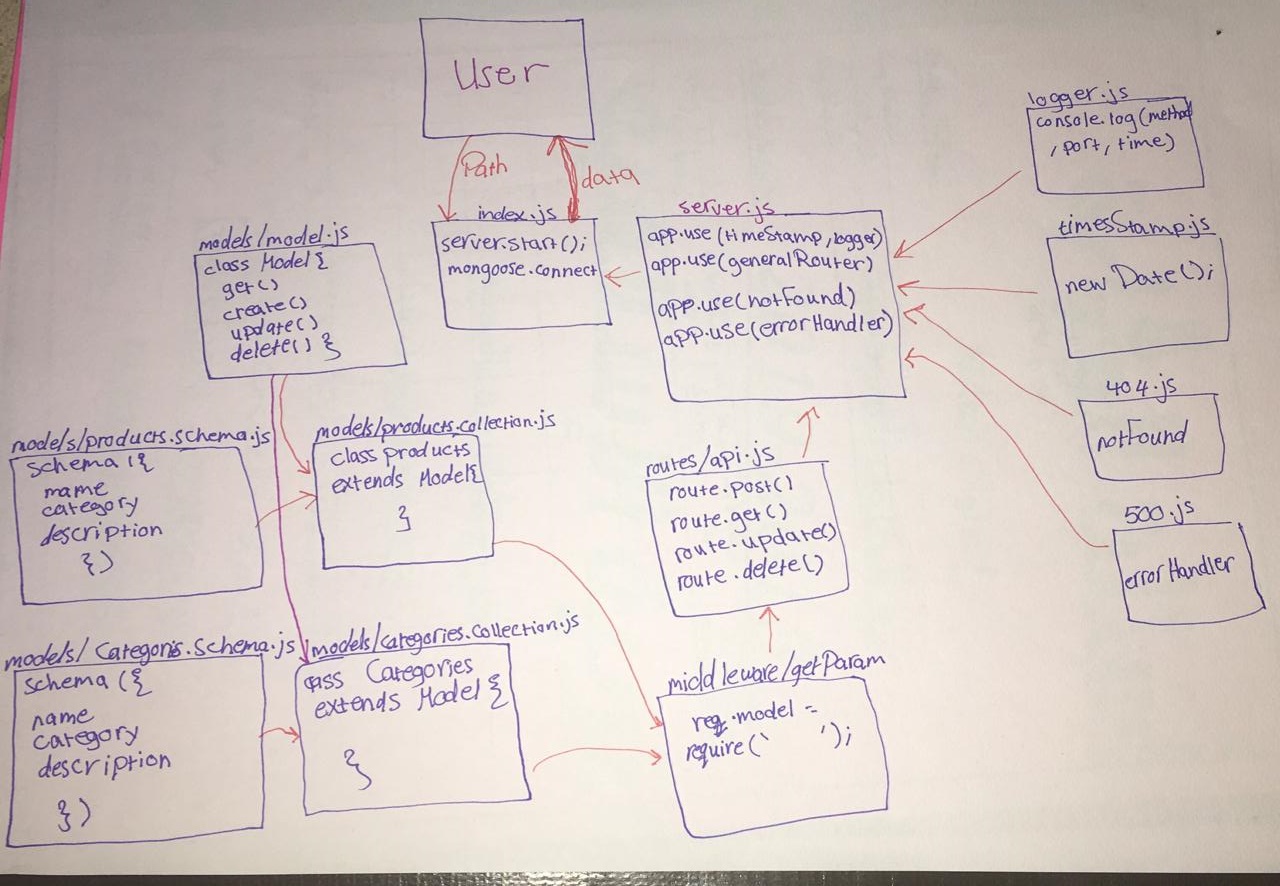 User
Path
data
index.js
server.start();
mongoose.connect
server.js
app.use(timeStamp,logger)
app.use(generalRouter)
app.use(notFound)
app.use(errorHandler)
logger.js
console.log(method
,port,time)
timesStamp.js
new Date();
404.js
notFound
500.js
errorHandler
models/model.js
class Model{
get()
create()
update()
delete() }
models/products.schema.js
schema({
name
category
description
})
models/products.collection.js
class products
extends Model{
}
routes/api.js
route.post()
route.get()
route.update()
route.delete()
models/Categoris.Schema.js
schema({
name
category
description
})
models/categories.collection.js
class Categories
extends Model{
}
middleware/getParam
req.model =
require(` ');